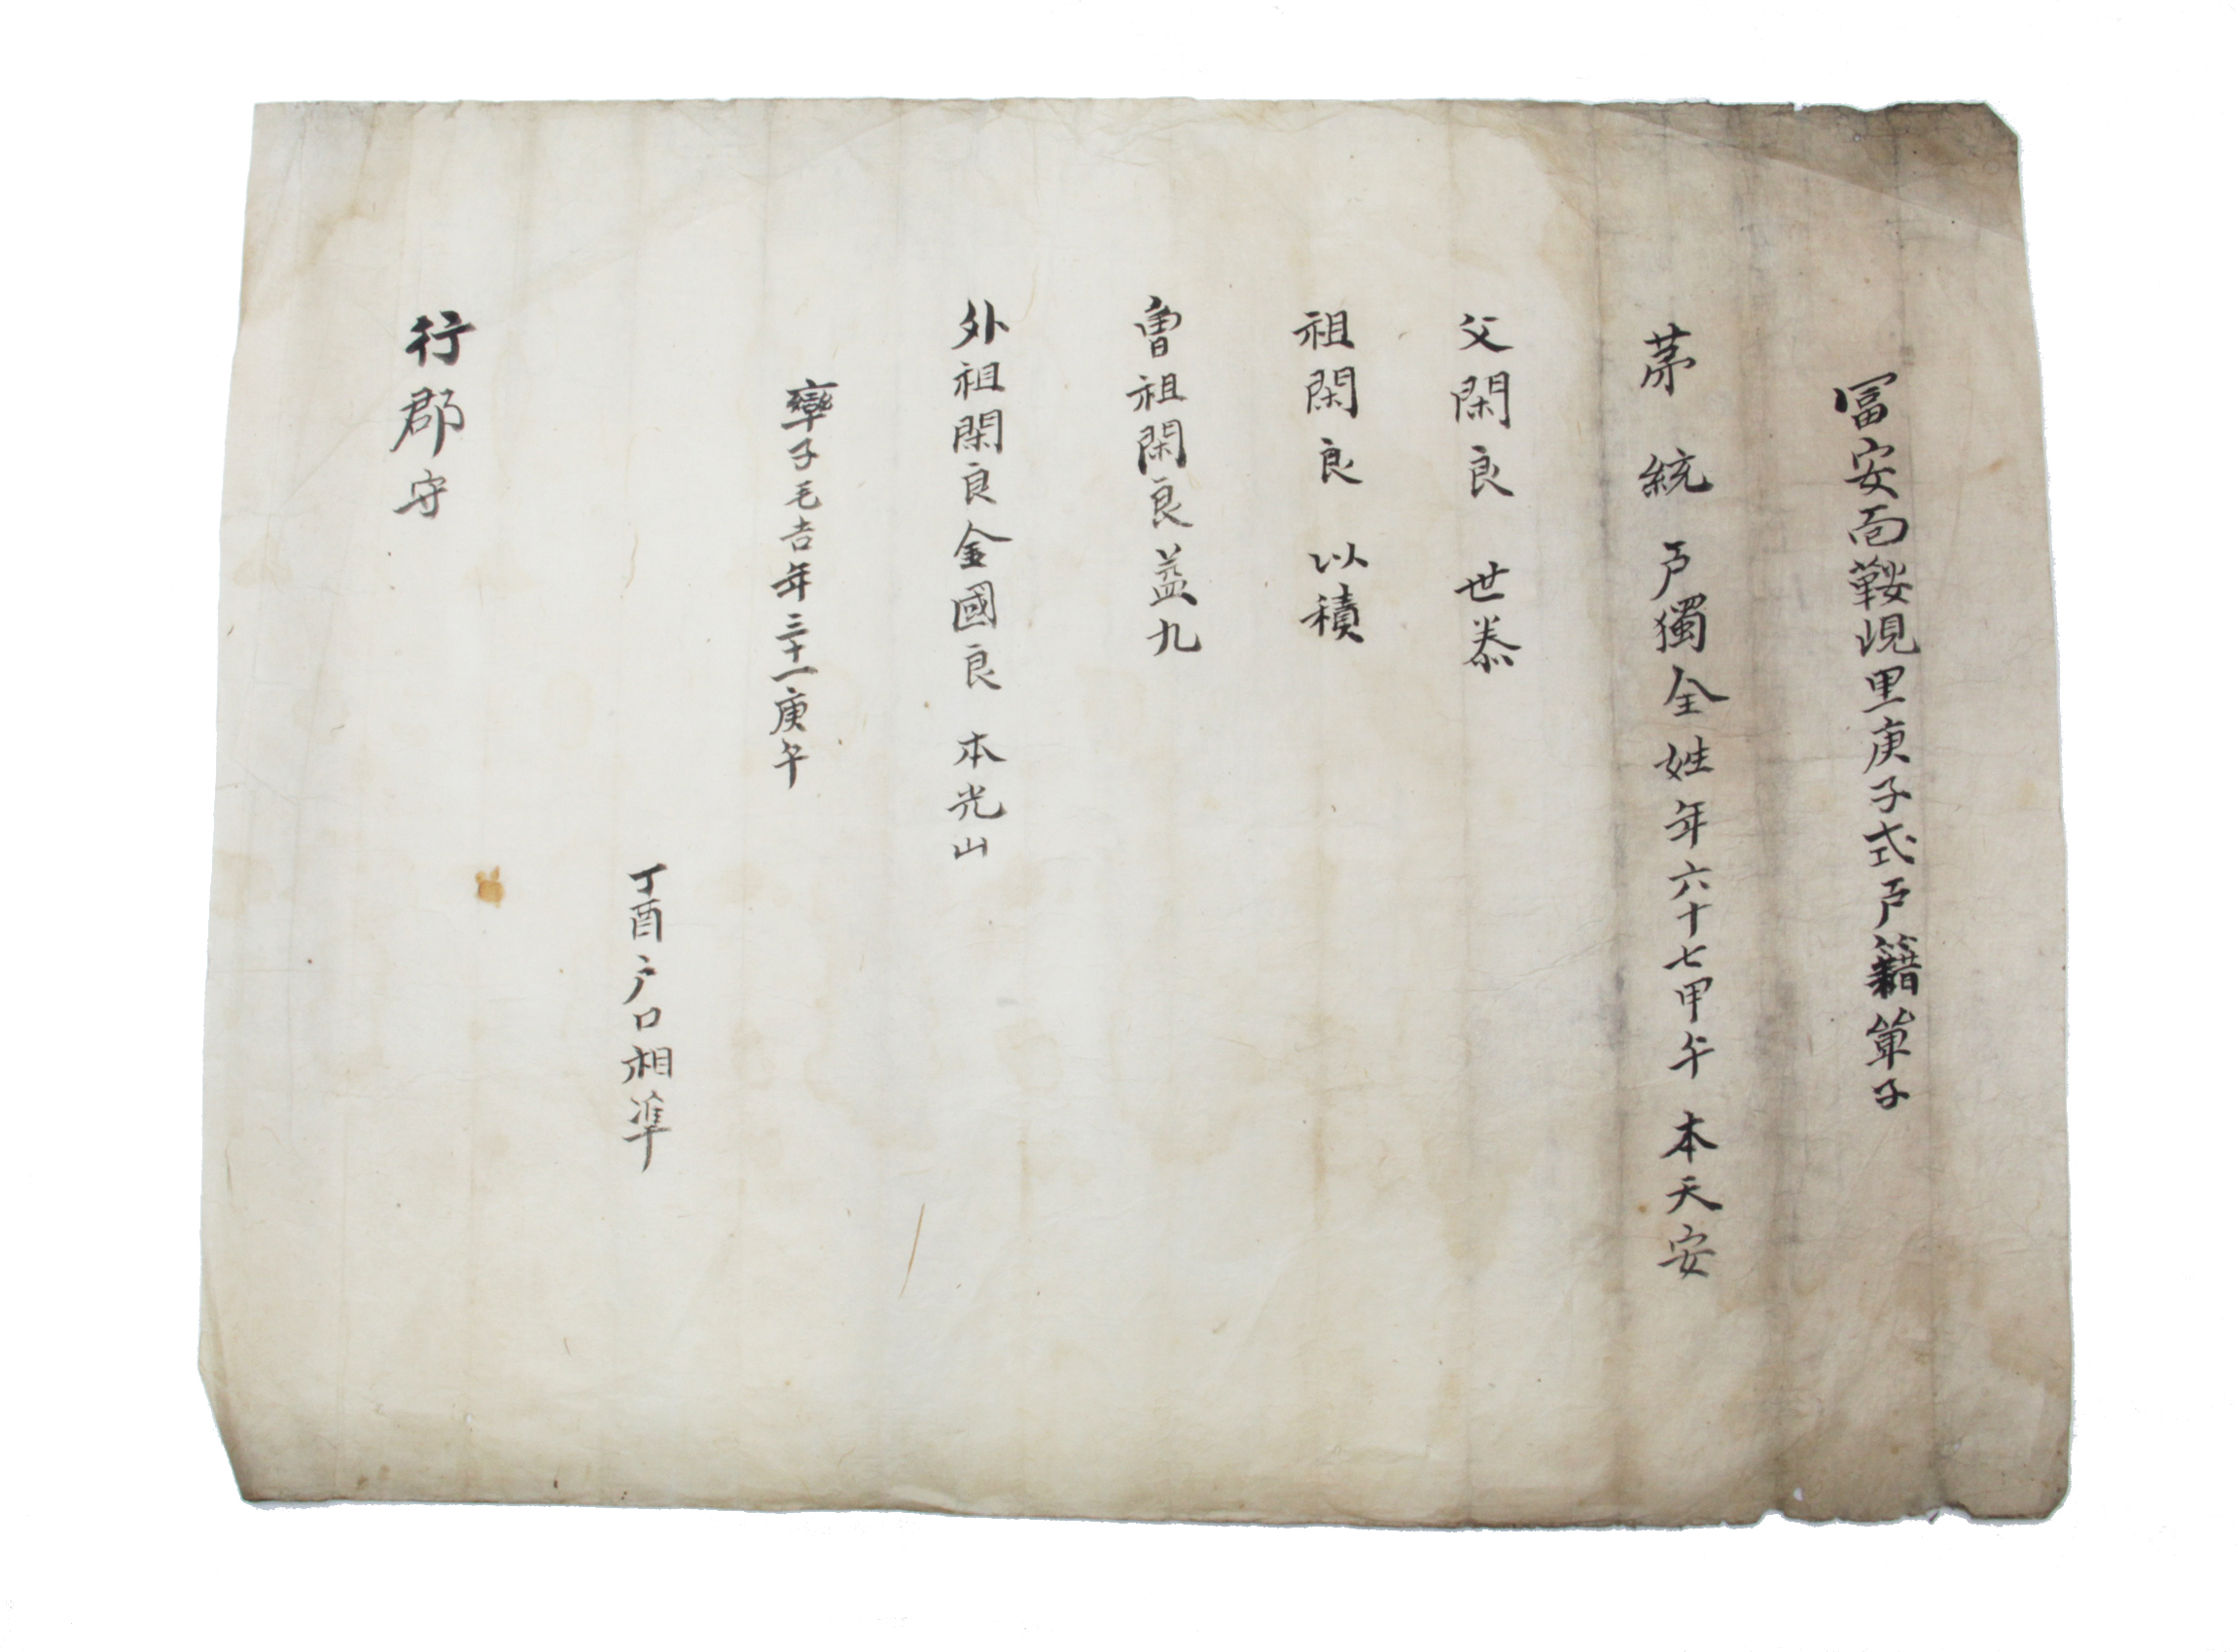 冨安面鞍峴里庚子式戸籍單子
苐 統 戸獨全姓年六十七甲午 本天安
父閑良 世泰
祖閑良 以積
曾祖閑良益九
外祖閑良金國良 本光山
率子毛吉年三十一庚午
丁酉户口相準
行郡守